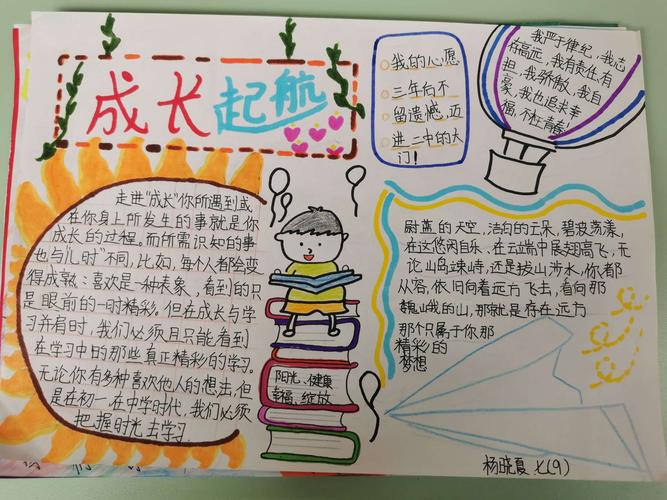 成长起航
我的心愿
三年后不
留遗憾,迈
进二中的大
门!
我严于律纪,我志
存高远,我有责任,有
担,我骄傲,我自
豪,我也追求幸
福,不枉青春!
走进“成长”你所遇到或
在你身上所发生的事就是你
成长的过程。而所需识知的事
也与儿时不同,比如,每个人都会变
得成熟:喜欢是一种表象,看到的只
是眼前的一时精彩。但在成长与学
习并有时,我们必须且只能看到
在学习中的那些真正精彩的学习。
无论你有多种喜欢他人的想法,但
是在初一,在中学时代,我们必须
把握时光去学习.
阳光、健康
幸福、绽放
尉蓝的天空,洁白的云朵,碧波荡漾,
在这悠闲自乐、在云端中展翅高飞,无
论山鸟竦峙,还是拔山涉水,你都
从容,依旧向着远方飞去,看向那
巍山峨的山,那就是存在远方
那个只属于你那
精彩的
梦想
杨晓夏 七(9)